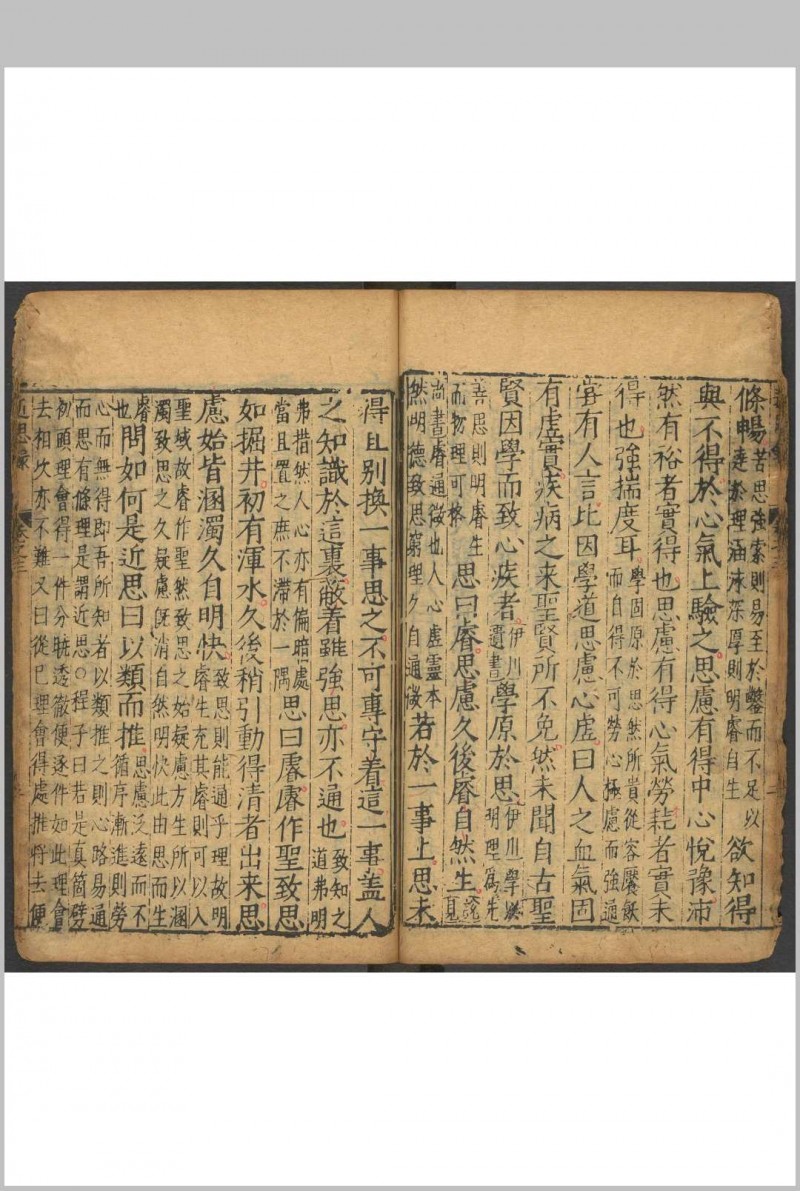 條暢苦思強索則易至於鑿而不足以達於理涵泳深厚則明睿自生欲知得
與不得於心氣上驗之思慮有得中心悅豫沛
然有裕者實得也思慮有得心氣勞耗者實未
得也強揣度耳學固原於思然所貴從容饜飫而自得不可勞心極慮而強通
嘗有人言比因學道思慮心虛曰人之血氣固
有虛實疾病之来聖賢所不免然未聞自古聖
賢因學而致心疾者伊川遺書學原於思伊川學以明理為先
善思則明睿生而物理可格思曰睿思慮久後睿自然生說見
尚書睿通微也人心虛靈本然明德致思窮理久自通徹若於一事上思未
得且别換一事思之不可專守着這一事盖人
之知識於這裏蔽着雖強思亦不通也致知之道弗明
弗措然人心亦有偏暗處當且置之庶不滯於一隅思曰睿睿作聖致思
如掘井初有渾水久後稍引動得清者出来思
慮始皆溷濁久自明快致思則能通乎理故明睿生充其睿則可以入
聖域故睿作聖然致思之始疑慮方生所以溷濁致思之久疑慮既消自然明快此由思而生
睿也問如何是近思曰以類而推思慮泛遠而不循序漸進則勞
心而無得即吾所知者以類推之則心路易通而思有條理是謂近思○程子曰若是真箇劈
初頭理會得一件分曉透徹便逐件如此理會去相次亦不難又曰從巳理會得處推将去便
近思錄
卷之三